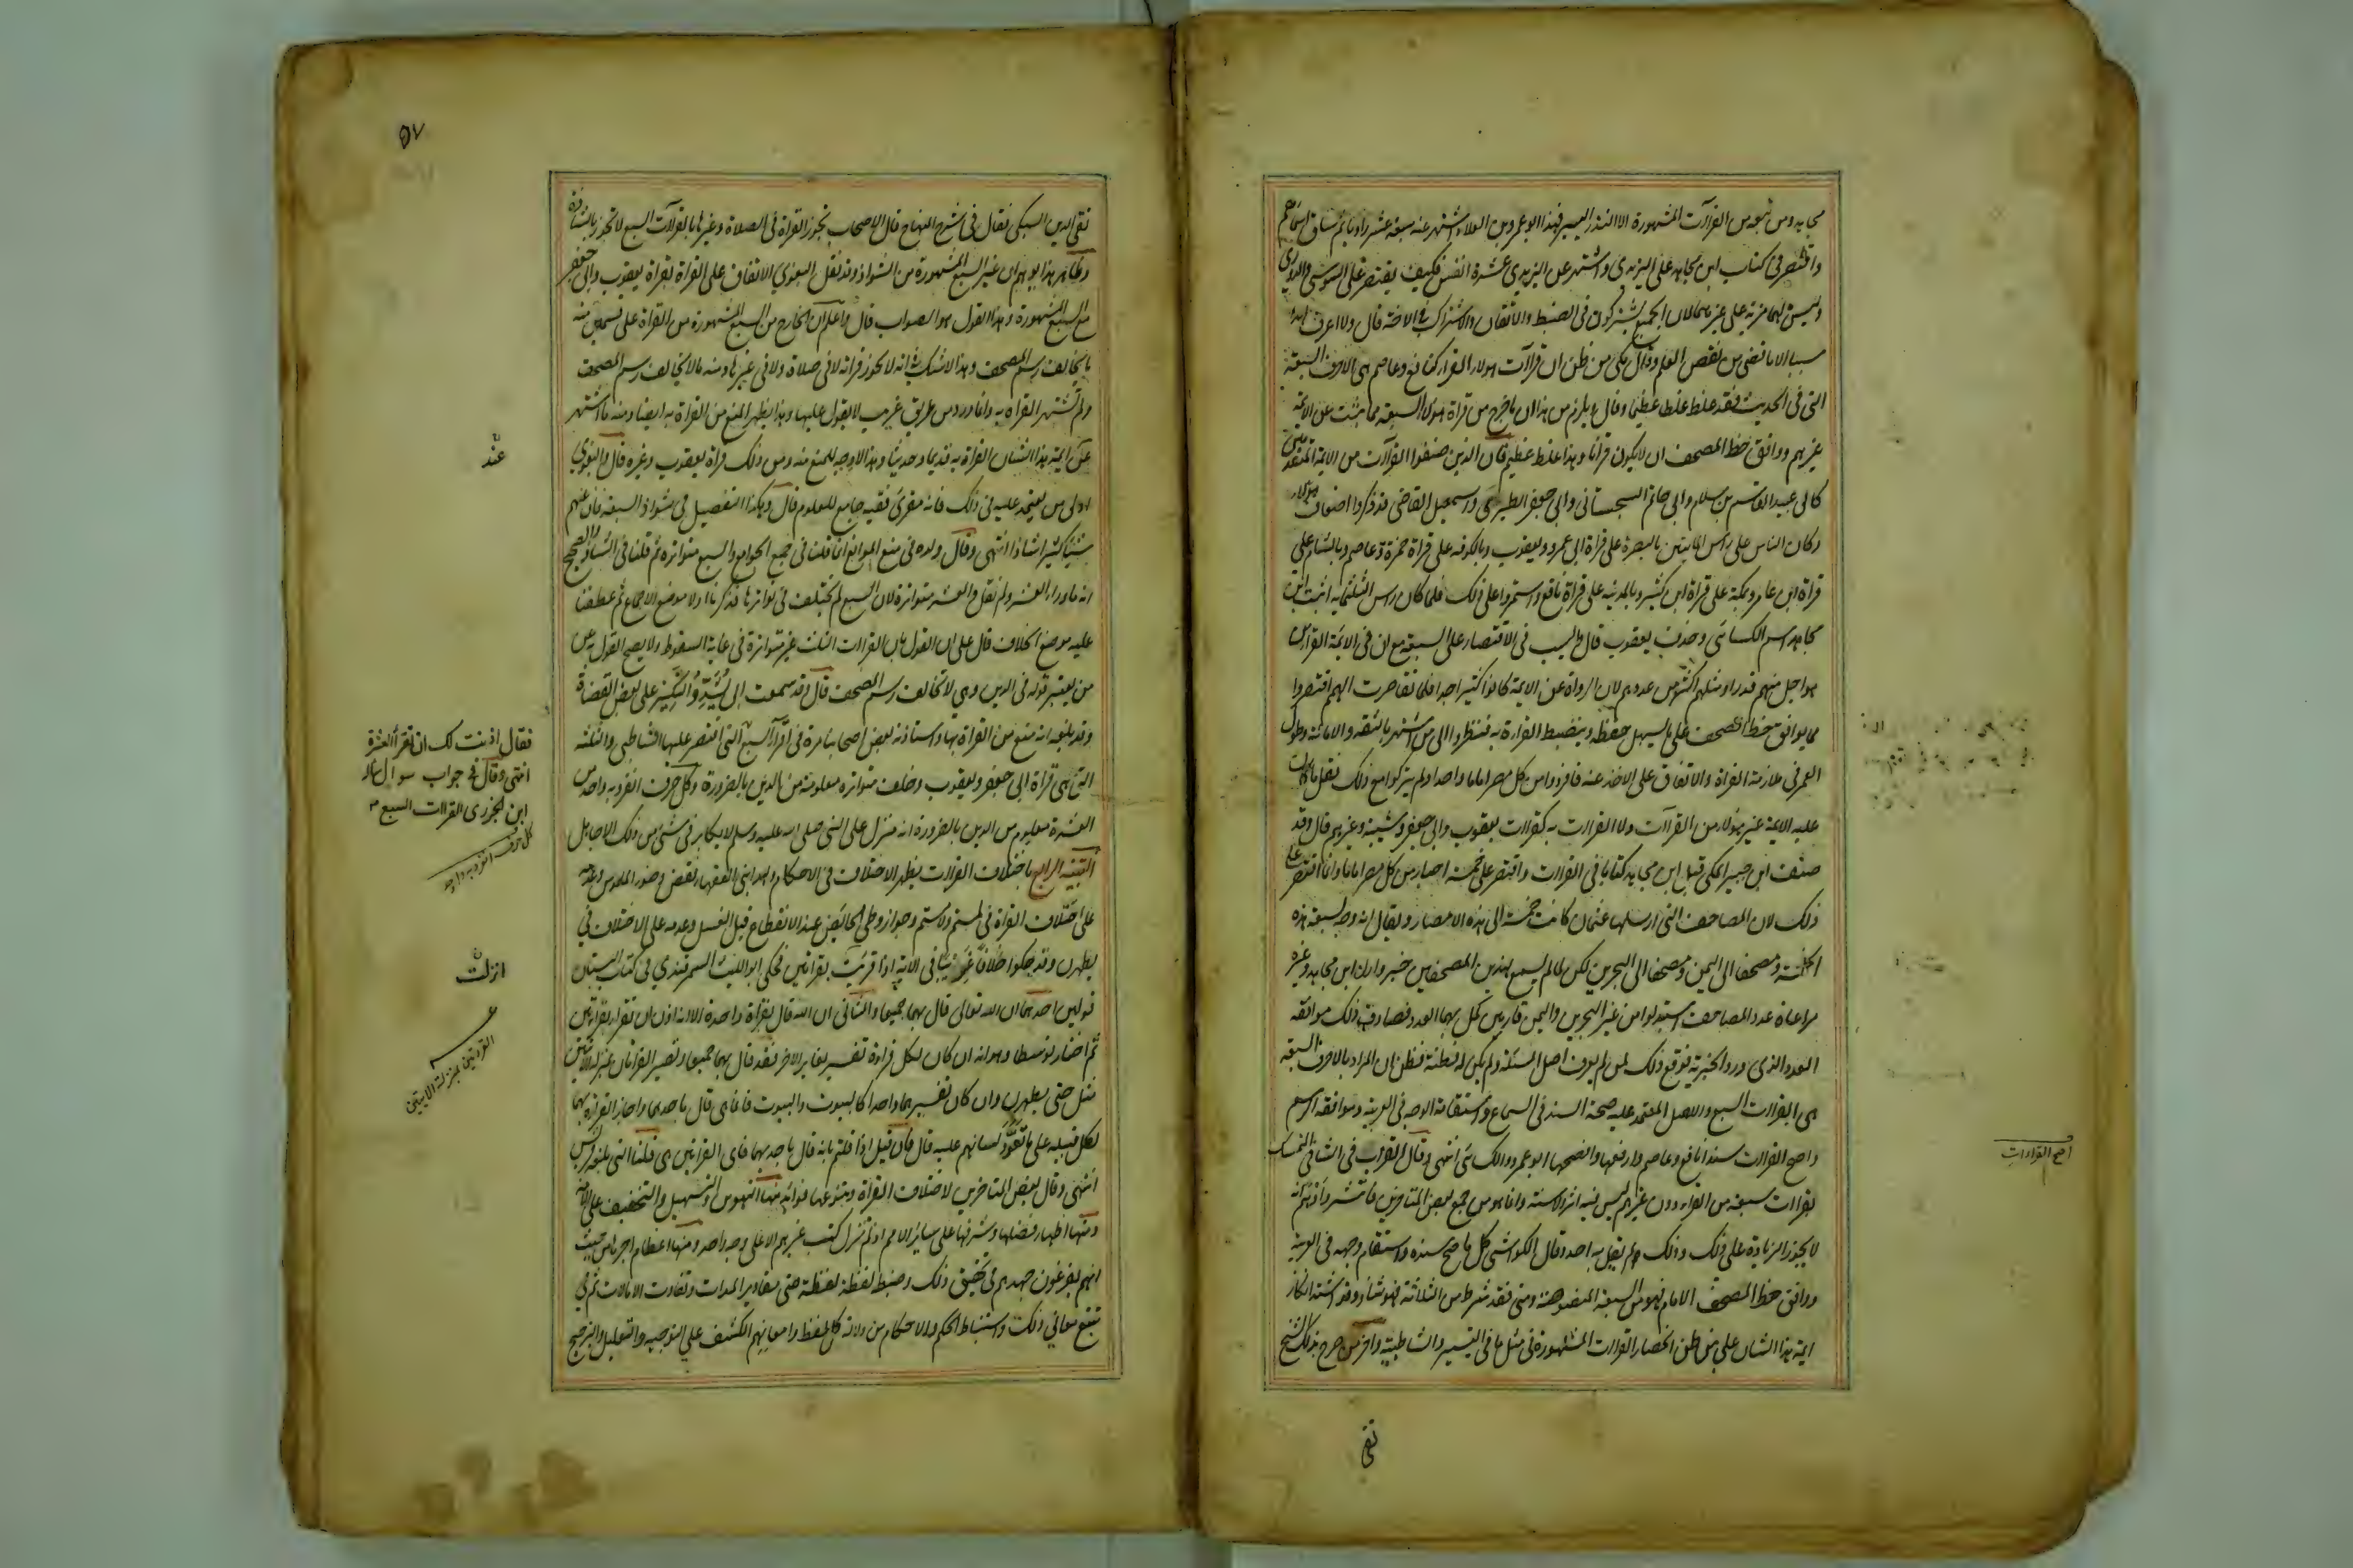 مجاهد ومن تبعه من القراآت المشهورة الا النذر اليسير فهذا ابو عمرو بن العلا اشتهر عنه سبعة عشر راويا ثم ساق اسماهم
واقتصر فى كتاب ابن مجاهد على اليزيدى واشتهر عن اليزيدى عشرة انفس فكيف يقتصر على السوسى والدورى
وليس لهما مزية على غيرهما لان الجميع يشتركون فى الضبط والاتقان والاشتراك فى الاخذ قال ولا اعرف لهذا
سببا الا ما قضى من نقص العلم وقال مكى من ظن ان قراآت هولاء القراء كنافع وعاصم هى الاحرف السبعة
التى فى الحديث فقد غلط غلطا عظيما وقال ويلزم من هذا ان ما خرج من قراة هولاء السبعة مما ثبت عن الائمة
غيرهم ووافق خط المصحف ان لا يكون قرانا وهذا غلط عظيم فان الذين صنفوا القراآت من الائمة المتقدمين
كابى عبيد القاسم بن سلام وابى حاتم السجستانى وابى جعفر الطبرى واسمعيل القاضى قد ذكروا اضعاف هولاء
وكان الناس على راس المايتين بالبصرة على قراة ابى عمرو ويعقوب وبالكوفة على قراة حمزة وعاصم وبالشام على
قراة ابن عامر وبمكة على قراة ابن كثير وبالمدينه على قراة نافع واستمروا على ذلك فلما كان راس الثلثمايه اثبت ابن
مجاهد اسم الكسائى وحذف يعقوب قال والسبب فى الاقتصار على السبعة مع ان فى الائمة القراء من
هو اجل منهم قدرا ومثلهم اكثر من عددهم لان الرواة عن الائمة كانوا كثيرا جدا فلما تقاصرت الهمم اقتصروا
مما يوافق خط المصحف على ما يسهل حفظه وينضبط القراءة به فنظروا الى من اشتهر بالثقة والامانة وطول
العمر فى ملازمة القراة والاتفاق على الاخذ عنه فافردوا من كل مصر اماما واحدا ولم يتركوا مع ذلك نقل ما كان
عليه الايمة غير هولاء من القراآت ولا القراات به كقراات يعقوب وابى جعفر وشيبة وغيرهم قال وقد
صنف ابن جبير المكى قبل ابن مجاهد كتابا فى القراات واقتصر على خمسة اختار من كل مصر اماما وانما اقتصر على
ذلك لان المصاحف التى ارسلها عثمان كانت خمسة الى هذه الامصار ويقال انه وجه بسبعة هذه
الخمسة ومصحفا الى اليمن ومصحفا الى البحرين لكن لما لم يسمع لهذين المصحفين خبر واراد ابن مجاهد وغيره
مراعاة عدد المصاحف استبدلوا من غير البحرين واليمن قاريين كمل بهما العدد فصادف ذلك موافقة
العدد الذى ورد الخبر به فوقع ذلك لمن لم يعرف اصل المسئلة ولم يكن له فطنة فظن ان المراد بالاحرف السبعة
هى القراات السبع والاصل المعتمد عليه صحة السند فى السماع واستقامة الوجه فى العربية وموافقة الرسم
واصح القراات سندا نافع وعاصم وارفعها وافصحها ابو عمرو والكسائى انتهى وقال القراب فى الشافى التمسك
بقراات سبعة من القراء دون غيرهم ليس فيه اثر ولا سنة وانما هو من جمع بعض المتاخرين فانتشر واوهم انه
لا يجوز الزيادة على ذلك وذلك لم يقل به احد وقال الكواشى كل ما صح سنده واستقام وجهه فى العربية
ووافق خط المصحف الامام فهو من السبعة المنصوصة ومتى فقد شرط من الثلاثة فهو شاذ وقد اشتد انكار
ايمة هذا الشان على من ظن انحصار القراات المشهورة فى مثل ما فى التيسير والشاطبية واخر من صرح بذلك الشيخ
تقى
اصح القراءات
٥٧
تقى الدين السبكى فقال فى شرح المنهاج قال الاصحاب تجوز القراة فى الصلاة وغيرها بالقراآت السبع لا تجوز بالشاذة
وظاهر هذا يوهم ان غير السبع المشهورة من الشواذ وقد نقل البغوى الاتفاق على القراة بقراة يعقوب وابى جعفر
مع السبع المشهورة وهذا القول هو الصواب قال واعلم ان الخارج من السبع المشهورة من القراة على قسمين منه
ما يخالف رسم المصحف وهذا لا شك فى انه لا يجوز قراته لا فى صلاة ولا فى غيرها ومنه مالا يخالف رسم المصحف
ولم تشتهر القراة به وانما ورد من طريق غريب لا يعول عليها وهذا يظهر المنع من القراة به ايضا ومنه ما اشتهر
عن ايمة هذا الشان القراة به قديما وحديثا وهذا لا وجه للمنع منه ومن ذلك قراة يعقوب وغيره قال والبغوى
اولى من يعتمد عليه فى ذلك فانه مقرئ فقيه جامع للعلوم قال وهكذا التفصيل فى شواذ السبعة فان عنهم
شيئا كثيرا شاذا انتهى وقال ولده فى منع الموانع انما قلنا فى جمع الجوامع والسبع متواترة ثم قلنا فى الشاذ والصحيح
انه ما وراء العشر ولم نقل والعشر متواترة لان السبع لم يختلف فى تواترها فذكرنا اولا موضع الاجماع ثم عطفنا
عليه موضع الخلاف قال على ان القول بان القراات الثلث غير متواترة فى غاية السقوط ولا يصح القول به عن
من يعتبر قوله فى الدين وهى لا تخالف رسم المصحف قال وقد سمعت ابى يشدد النكير على بعض القضاة
وقد بلغه انه منع من القراة بها واستاذنه بعض اصحابنا مرة فى اقراء السبع التى اقتصر عليها الشاطبى والثلثة
التى هى قراة ابى جعفر ويعقوب وخلف متواترة معلومة من الدين بالضرورة وكل حرف انفرد به واحد من
العشرة معلوم من الدين بالضرورة انه منزل على النبى صلى الله عليه وسلم لا يكابر فى شئ من ذلك الا جاهل
التنبيه الرابع باختلاف القراات يظهر الاختلاف فى الاحكام ولهذا بنى الفقهاء نقض وضوء الملموس وعدمه
على اختلاف القراة فى لمستم ولامستم وجواز وطى الحائض عند الانقطاع قبل الغسل وعدمه على الاختلاف فى
يطهرن وقد حكوا خلافا غريبا فى الاية اذا قريت بقراتين فحكى ابو الليث السمرقندى فى كتاب البستان
قولين احدهما ان الله تعالى قال بهما جميعا والثانى ان الله قال بقراة واحدة الا انه اذن ان تقراء بقراتين
ثم اختار توسطا وهو انه ان كان لكل قراءة تفسير يغاير الاخر فقد قال بهما جميعا وتصير القراتان بمنزلة الايتين
مثل حتى يطهرن وان كان تفسيرهما واحدا كالبيوت والبيوت فانما قال باحدهما واجاز القراءة بهما
لكل قبيلة على ما تعود لسانهم عليه قال فان قيل اذا قلتم بانه قال باحديهما فاى القراتين هى قلنا التى بلغة قريش
انتهى وقال بعض المتاخرين لاختلاف القراة وتنوعها فوائد منها التهوين والتسهيل والتخفيف على الامة
ومنها اظهار فضلها وشرفها على سائر الامم اذ لم تنزل كتب غيرهم الا على وجه واحد ومنها اعظام اجرها من حيث
انهم يفرغون جهدهم فى تحقيق ذلك وضبط لفظة لفظة حتى مقادير المدات وتفاوت الامالات ثم فى
تتبع معانى ذلك واستنباط الحكم والاحكام من دلالة كل لفظ وامعانهم الكشف على التوجيه والتعليل والترجيح
عند
فقال اذنت لك ان تقرأ العشرة
انتهى وقال فى جواب سوال سأله
ابن الجزرى القراات السبع
كل حرف انفرد به واحد
انزلت
القراتين بمنزلة الايتين